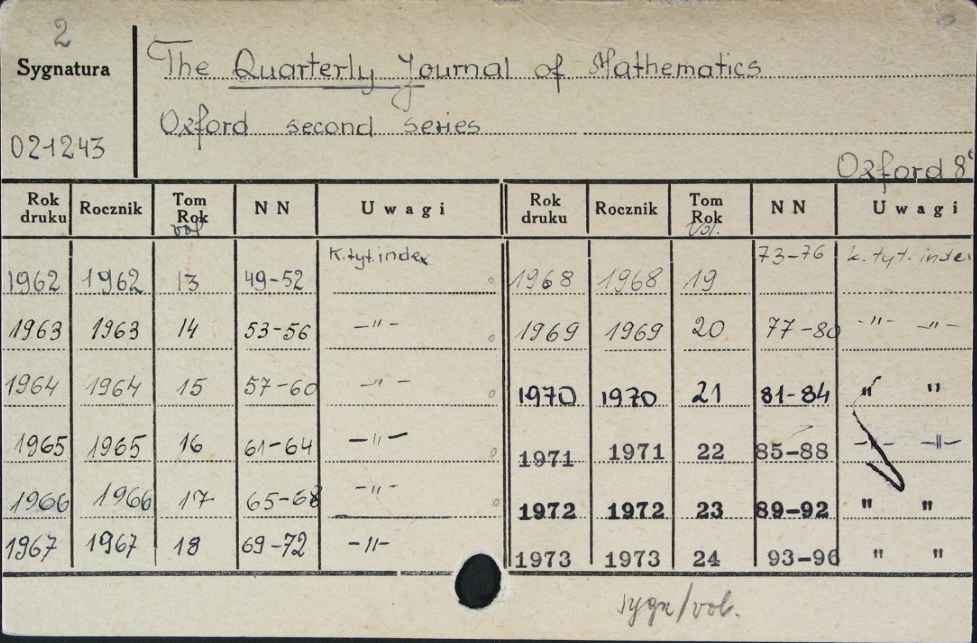 2
Sygnatura
021243
The Quarterly Journal of Mathematics
Oxford second series
Oxford 8°
Rok druku Rocznik Tom Rok vol NN Uwagi Rok druku Rocznik Tom Rok vol. NN Uwagi
1962 1962 13 49-52 K.tyt.index 1968 1968 19 73-76 k.tyt. index
1963 1963 14 53-56 -"- 1969 1969 20 77-80 -"- -"-
1964 1964 15 57-60 -"- 1970 1970 21 81-84 " "
1965 1965 16 61-64 -"- 1971 1971 22 85-88 -"- -"-
1966 1966 17 65-68 -"- 1972 1972 23 89-92 " "
1967 1967 18 69-72 -"- 1973 1973 24 93-96 " "
sygn/vol.